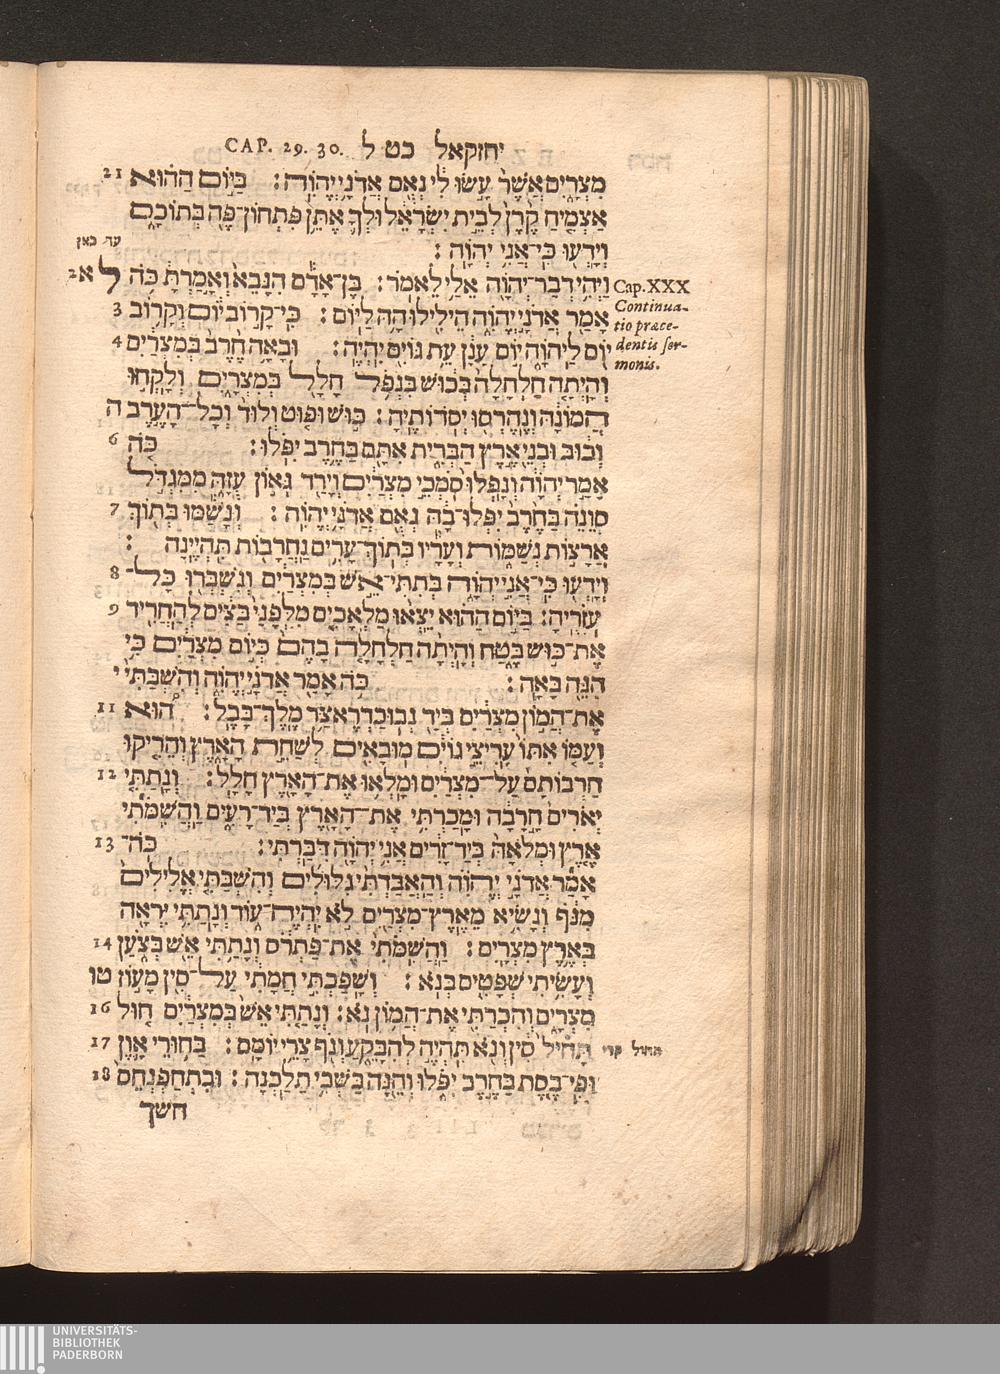 יחזקאל כט ל CAP. 29. 30.
מִצְרַיִם אֲשֶׁר עָשׂוּ לִי נְאֻם אֲדֹנָי יֱהֹוִה׃ בַּיּוֹם הַהוּא 21
אַצְמִיחַ קֶרֶן לְבֵית יִשְׂרָאֵל וּלְךָ אֶתֵּן פִּתְחוֹן־פֶּה בְּתוֹכָם
וְיָדְעוּ כִּי־אֲנִי יְהֹוָה׃
עד כאן
וַיְהִי דְבַר־יְהֹוָה אֵלַי לֵאמֹר׃ בֶּן־אָדָם הִנָּבֵא וְאָמַרְתָּ כֹּה ל א 2
Cap.XXX
Continua-
tio præce-
dentis ser-
monis.
אָמַר אֲדֹנָי יֱהֹוִה הֵילִילוּ הָהּ לַיּוֹם׃ כִּי־קָרוֹב יוֹם וְקָרוֹב 3
יוֹם לַיהֹוָה יוֹם עָנָן עֵת גּוֹיִם יִהְיֶה׃ וּבָאָה חֶרֶב בְּמִצְרַיִם 4
וְהָיְתָה חַלְחָלָה בְּכוּשׁ בִּנְפֹל חָלָל בְּמִצְרָיִם וְלָקְחוּ
הֲמוֹנָהּ וְנֶהֶרְסוּ יְסֹדוֹתֶיהָ׃ כּוּשׁ וּפוּט וְלוּד וְכָל־הָעֶרֶב ה
וְכוּב וּבְנֵי אֶרֶץ הַבְּרִית אִתָּם בַּחֶרֶב יִפֹּלוּ׃ כֹּה 6
אָמַר יְהֹוָה וְנָפְלוּ סֹמְכֵי מִצְרַיִם וְיָרַד גְּאוֹן עֻזָּהּ מִמִּגְדֹּל
סְוֵנֵה בַּחֶרֶב יִפְּלוּ־בָהּ נְאֻם אֲדֹנָי יֱהֹוִה׃ וְנָשַׁמּוּ בְּתוֹךְ 7
אֲרָצוֹת נְשַׁמּוֹת וְעָרָיו בְּתוֹךְ־עָרִים נַחֲרָבוֹת תִּהְיֶינָה׃
וְיָדְעוּ כִּי־אֲנִי יְהֹוָה בְּתִתִּי־אֵשׁ בְּמִצְרַיִם וְנִשְׁבְּרוּ כָּל־ 8
עֹזְרֶיהָ׃ בַּיּוֹם הַהוּא יֵצְאוּ מַלְאָכִים מִלְּפָנַי בַּצִּים לְהַחֲרִיד 9
אֶת־כּוּשׁ בֶּטַח וְהָיְתָה חַלְחָלָה בָהֶם כְּיוֹם מִצְרַיִם כִּי
הִנֵּה בָּאָה׃ כֹּה אָמַר אֲדֹנָי יֱהֹוִה וְהִשְׁבַּתִּי י
אֶת־הֲמוֹן מִצְרַיִם בְּיַד נְבוּכַדְרֶאצַּר מֶלֶךְ־בָּבֶל׃ הוּא 11
וְעַמּוֹ אִתּוֹ עָרִיצֵי גוֹיִם מוּבָאִים לְשַׁחֵת הָאָרֶץ וְהֵרִיקוּ
חַרְבוֹתָם עַל־מִצְרַיִם וּמָלְאוּ אֶת־הָאָרֶץ חָלָל׃ וְנָתַתִּי 12
יְאֹרִים חָרָבָה וּמָכַרְתִּי אֶת־הָאָרֶץ בְּיַד־רָעִים וַהֲשִׁמֹּתִי
אֶרֶץ וּמְלֹאָהּ בְּיַד־זָרִים אֲנִי יְהֹוָה דִּבַּרְתִּי׃ כֹּה־ 13
אָמַר אֲדֹנָי יֱהֹוִה וְהַאֲבַדְתִּי גִלּוּלִים וְהִשְׁבַּתִּי אֱלִילִים
מִנֹּף וְנָשִׂיא מֵאֶרֶץ־מִצְרַיִם לֹא יִהְיֶה־עוֹד וְנָתַתִּי יִרְאָה
בְּאֶרֶץ מִצְרָיִם׃ וַהֲשִׁמֹּתִי אֶת־פַּתְרוֹס וְנָתַתִּי אֵשׁ בְּצֹעַן 14
וְעָשִׂיתִי שְׁפָטִים בְּנֹא׃ וְשָׁפַכְתִּי חֲמָתִי עַל־סִין מָעוֹז טו
מִצְרָיִם וְהִכְרַתִּי אֶת־הֲמוֹן נֹא׃ וְנָתַתִּי אֵשׁ בְּמִצְרַיִם חוּל 16
תָּחִיל סִין וְנֹא תִּהְיֶה לְהִבָּקֵעַ וְנֹף צָרֵי יוֹמָם׃ בַּחוּרֵי אָוֶן 17
תחול קרי
וּפִי־בֶסֶת בַּחֶרֶב יִפֹּלוּ וְהֵנָּה בַּשְּׁבִי תֵלַכְנָה׃ וּבִתְחַפְנְחֵס 18
חשך
UNIVERSITÄTS-
BIBLIOTHEK
PADERBORN